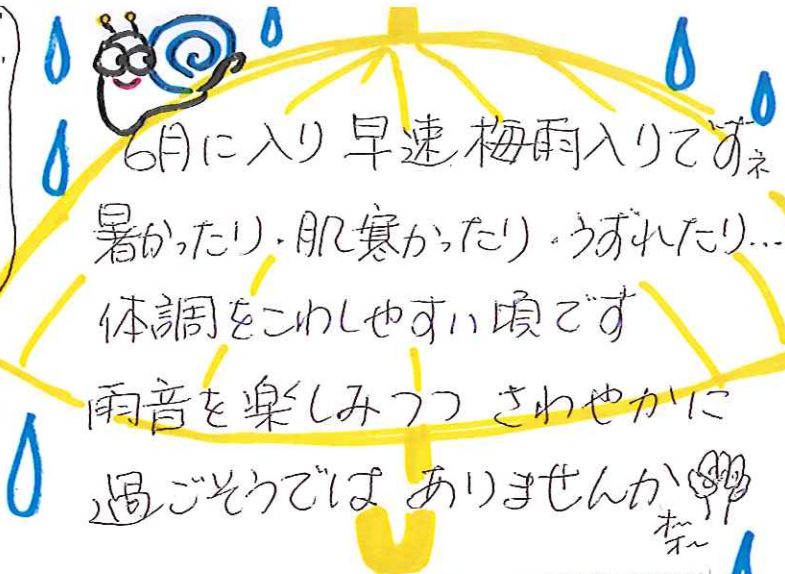 6月に入り 早速 梅雨入りですネ
暑かったり・肌寒かったり・うずれたり…
体調をこわしやすい頃です
雨音を楽しみつつ さわやかに
過ごそうでは ありませんか
オ～
オ～